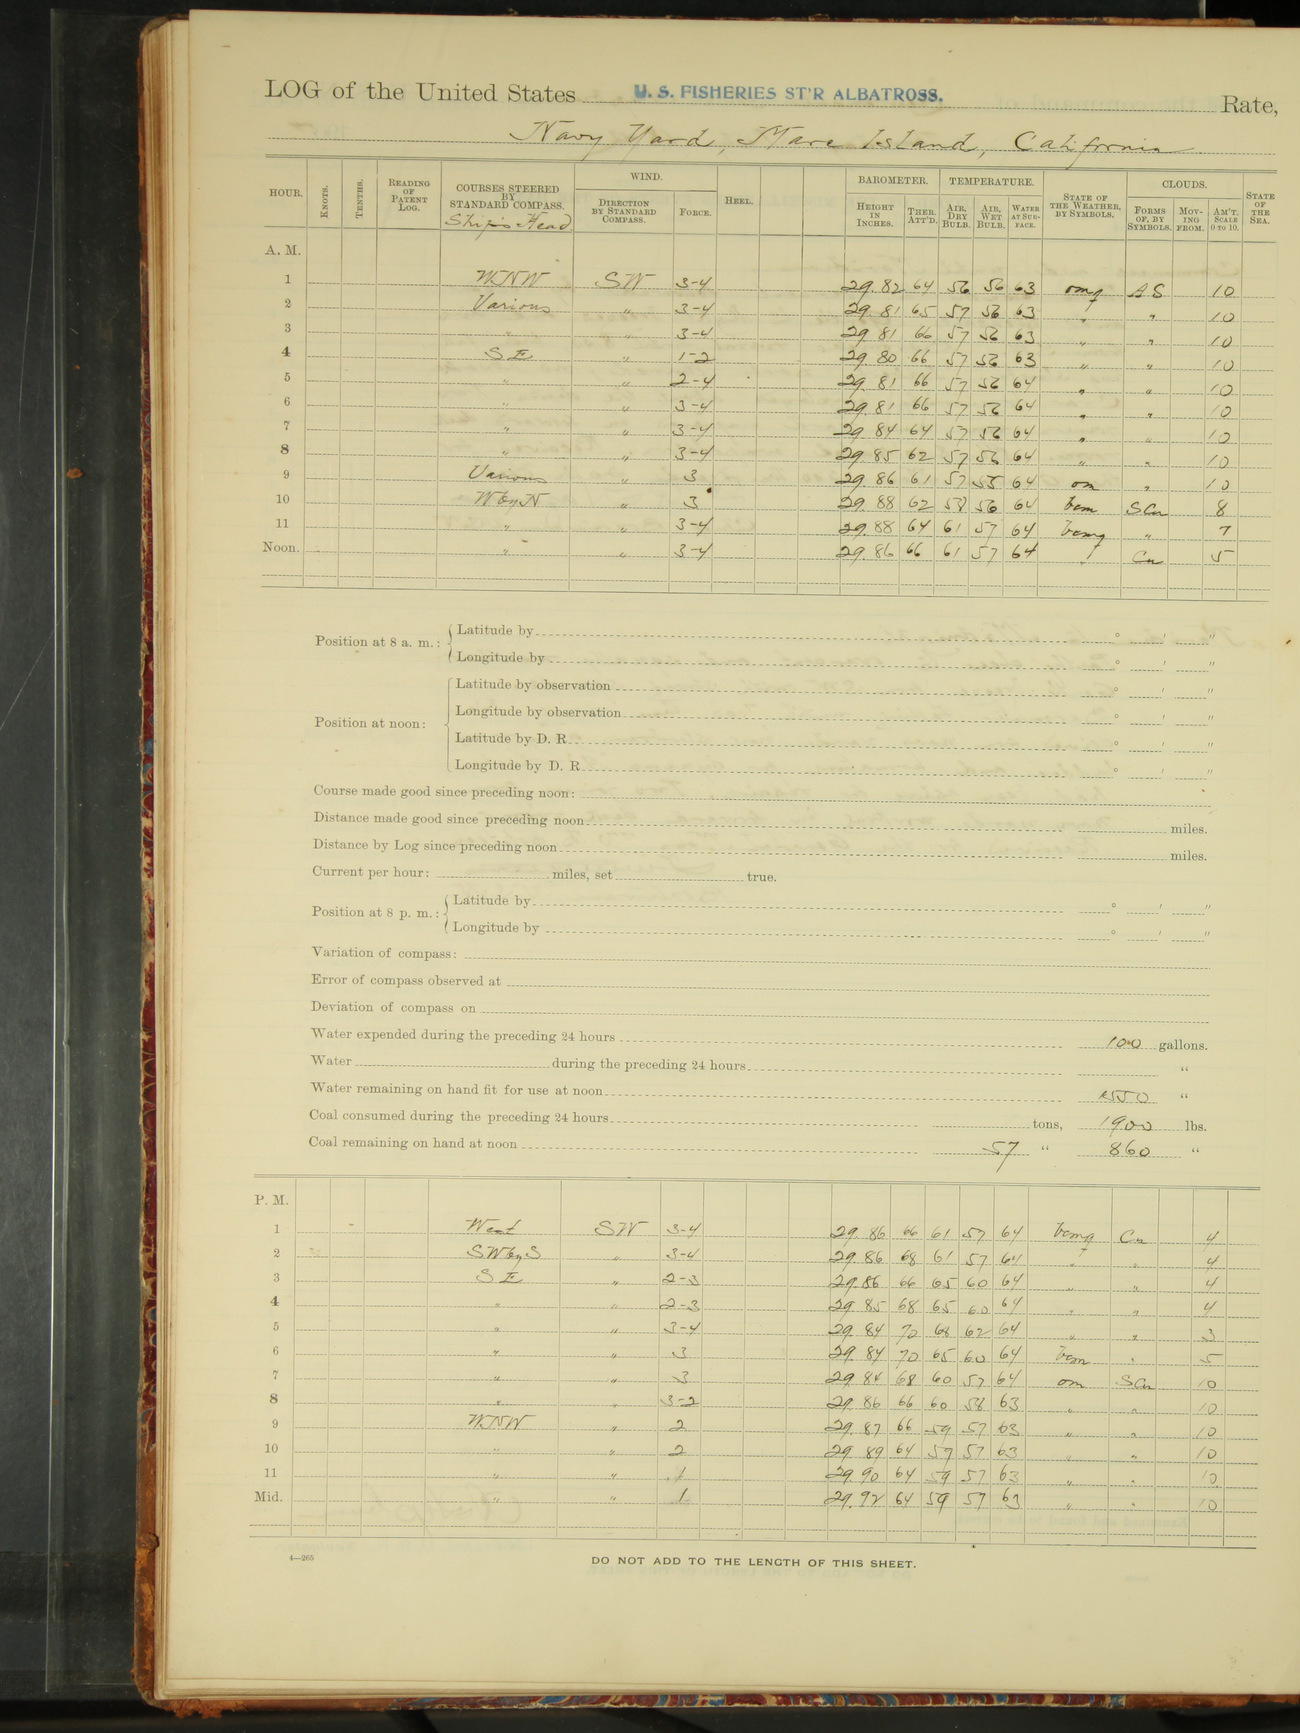 LOG of the United States U. S. FISHERIES ST'R ALBATROSS. Rate,
Navy Yard, Mare Island, California
HOUR. KNOTS. TENTHS. READING OF PATENT LOG. COURSES STEERED BY STANDARD COMPASS. Ship's Head WIND. DIRECTION BY STANDARD COMPASS. FORCE. HEEL. BAROMETER. HEIGHT IN INCHES. THER. ATT'D. TEMPERATURE. AIR, DRY BULB. AIR, WET BULB. WATER AT SURFACE. STATE OF THE WEATHER, BY SYMBOLS. CLOUDS. FORMS OF, BY SYMBOLS. MOVING FROM. AM'T. SCALE 0 TO 10. STATE OF THE SEA.
A. M.
1 WNW SW 3-4 29.82 64 56 56 63 omq AS 10
2 Various " 3-4 29.81 65 57 56 63 " " 10
3 " " 3-4 29.81 66 57 56 63 " " 10
4 SE " 1-2 29.80 66 57 56 63 " " 10
5 " " 2-4 29.81 66 57 56 64 " " 10
6 " " 3-4 29.81 66 57 56 64 " " 10
7 " " 3-4 29.84 64 57 56 64 " " 10
8 " " 3-4 29.85 62 57 56 64 " " 10
9 Various " 3 29.86 61 57 55 64 om " 10
10 WbyN " 3 29.88 62 58 56 64 bcm SCu 8
11 " " 3-4 29.88 64 61 57 64 bcmq " 7
Noon. " " 3-4 29.86 66 61 57 64 " Cu 5
Position at 8 a. m.: Latitude by ° ' "
Longitude by ° ' "
Position at noon: Latitude by observation ° ' "
Longitude by observation ° ' "
Latitude by D. R. ° ' "
Longitude by D. R. ° ' "
Course made good since preceding noon:
Distance made good since preceding noon miles.
Distance by Log since preceding noon miles.
Current per hour: miles, set true.
Position at 8 p. m.: Latitude by ° ' "
Longitude by ° ' "
Variation of compass:
Error of compass observed at
Deviation of compass on
Water expended during the preceding 24 hours 100 gallons.
Water during the preceding 24 hours "
Water remaining on hand fit for use at noon "
Coal consumed during the preceding 24 hours tons, 1900 lbs.
Coal remaining on hand at noon 57 " 860 "
P. M.
1 West SW 3-4 29.86 66 61 57 64 bcmq Cu 4
2 SWbyS " 3-4 29.86 68 61 57 64 " " 4
3 SE " 2-3 29.86 66 65 60 64 " " 4
4 " " 2-3 29.85 68 65 60 64 " " 4
5 " " 3-4 29.84 70 68 62 64 " " 3
6 " " 3 29.84 70 65 60 64 bcm " 5
7 " " 3 29.84 68 60 57 64 om SCu 10
8 " " 3-2 29.86 66 60 58 63 " " 10
9 WNW " 2 29.87 66 59 57 63 " " 10
10 " " 2 29.89 64 59 57 63 " " 10
11 " " 1 29.90 64 59 57 63 " " 10
Mid. " " 1 29.92 64 59 57 63 " " 10
4—265
DO NOT ADD TO THE LENGTH OF THIS SHEET.